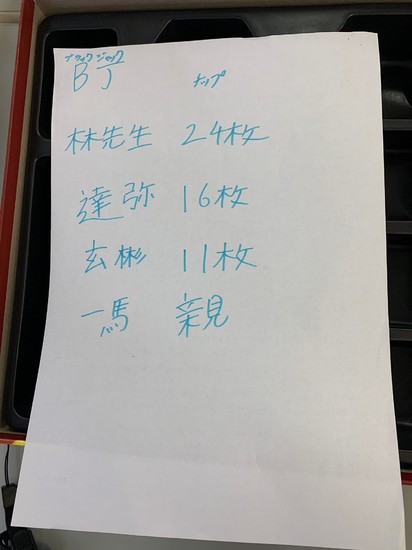 ブラックジャック
BJ チップ
林先生 24枚
達弥 16枚
玄彬 11枚
一馬 親